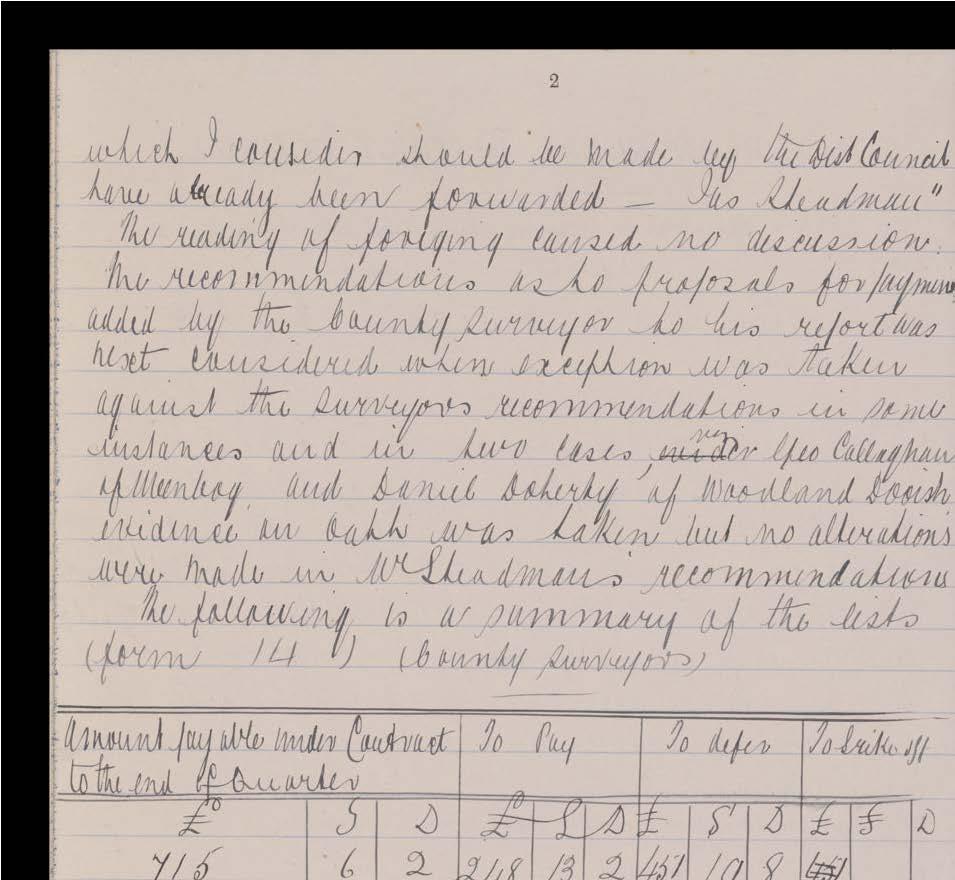 2
which I consider should be made by the Dist Council
have already been forwarded – Jas Steadman"
The reading of foregoing caused no discussion.
The recommendations as to proposals for paymen
added by the County Surveyor to his report was
next considered when exception was taken
against the Surveyors recommendations in some
instances and in two cases, viz Geo Callaghan
of Meenbog and Daniel Doherty of Woodland Dooish
evidence on oath was taken but no alterations
were made in Mr Steadman's recommendations
The following is a summary of the lists
(form 14) (County Surveyors)
Amount payable under Contract to the end of Quarter | To Pay | To defer | To Strike off
£ S D | £ S D | £ S D | £ D
715 6 2 | 218 13 2 | 451 19 8